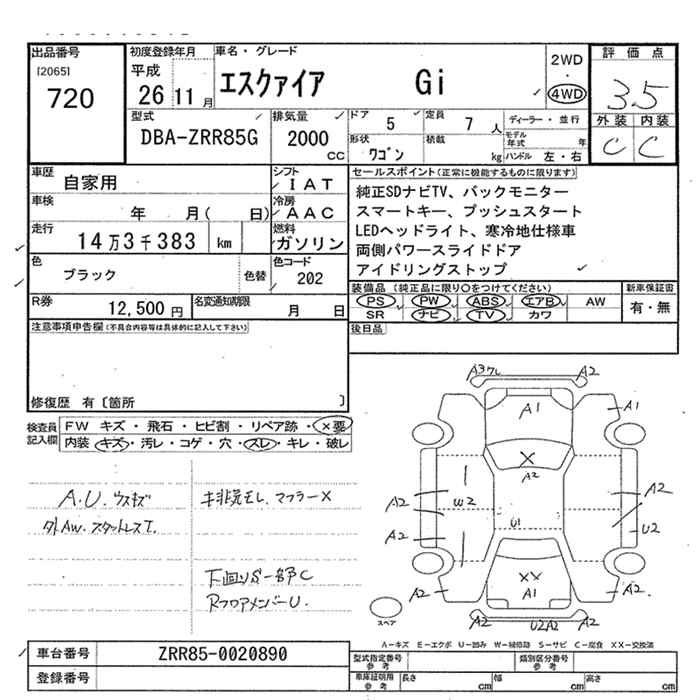 出品番号
[2065]
720
初度登録年月
平成
26 11 月
車名・グレード
エスクァイア Gi
2WD
・
4WD
評価点
3.5
外装 内装
C C
型式
DBA-ZRR85G
排気量
2000
CC
ドア
5
定員
7 人
形状
ワゴン
積載
kg
ディーラー・並行
モデル年式 年
ハンドル 左・右
車歴
自家用
シフト
I A T
車検
年 月( 日)
冷房
A A C
走行
14万3千383 km
燃料
ガソリン
色
ブラック
色替
色コード
202
R券
12,500 円
名変通知期限
月 日
セールスポイント(正常に機能するものに限ります)
純正SDナビTV、バックモニター
スマートキー、プッシュスタート
LEDヘッドライト、寒冷地仕様車
両側パワースライドドア
アイドリングストップ
装備品 (純正品に限り○をつけてください)
新車保証書
PS PW ABS エアB AW
SR ナビ TV カワ
有・無
後日品
注意事項申告欄(不具合内容等は具体的に記入して下さい)
修復歴 有〔箇所 〕
検査員記入欄
FW キズ・飛石・ヒビ割・リペア跡・×要
内装 キズ・汚レ・コゲ・穴・スレ・キレ・破レ
A.U.ウスキズ
外AW.スタットレスT.
マフラー×
下回りS一部C
RフロアメンバーU.
A3 ワレ
A2
A1
A1
X
A2
A2
W2
A2
U1
A2
U2
XX
A1
A2
A2
A2
U2A2
A2
スペア
A-キズ E-エクボ U-凹み W-補修跡 S-サビ C-腐食 XX-交換済
車台番号
ZRR85-0020890
登録番号
型式指定番号
参考
類別区分番号
参考
車庫証明用
参考
長さ cm
幅 cm
高さ cm